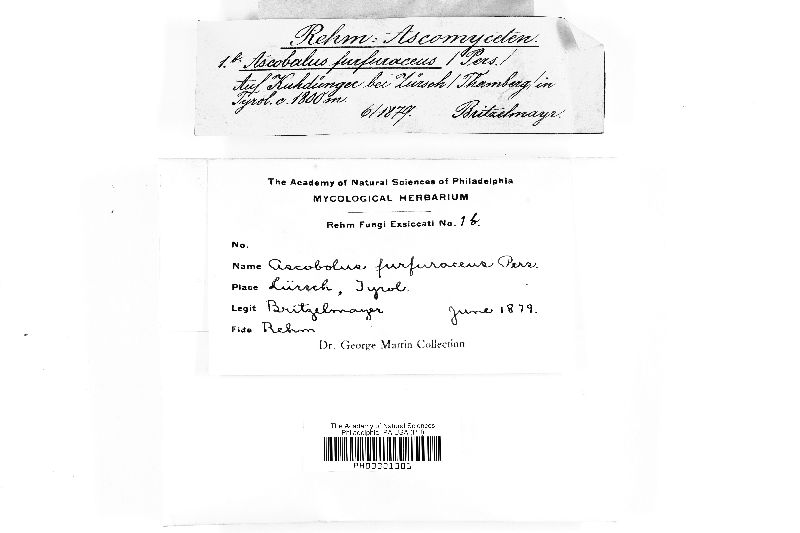 Rehm: Ascomyceten.
1.b. Ascobalus furfuraceus /Pers./
Auf Kuhdünger bei Zürsch /Thamberg/ in
Tyrol. c. 1800 m.
6/1879. Britzelmayr.
The Academy of Natural Sciences of Philadelphia
MYCOLOGICAL HERBARIUM
Rehm Fungi Exsiccati No. 1 b.
No.
Name Ascobolus furfuraceus Pers.
Place Lürsch, Tyrol.
Legit Britzelmayer June 1879.
Fide Rehm
Dr. George Martin Collection
The Academy of Natural Sciences
Philadelphia, PA USA (PH)